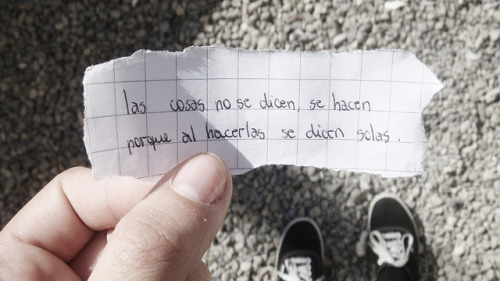 las cosas no se dicen, se hacen
porque al hacerlas se dicen solas.